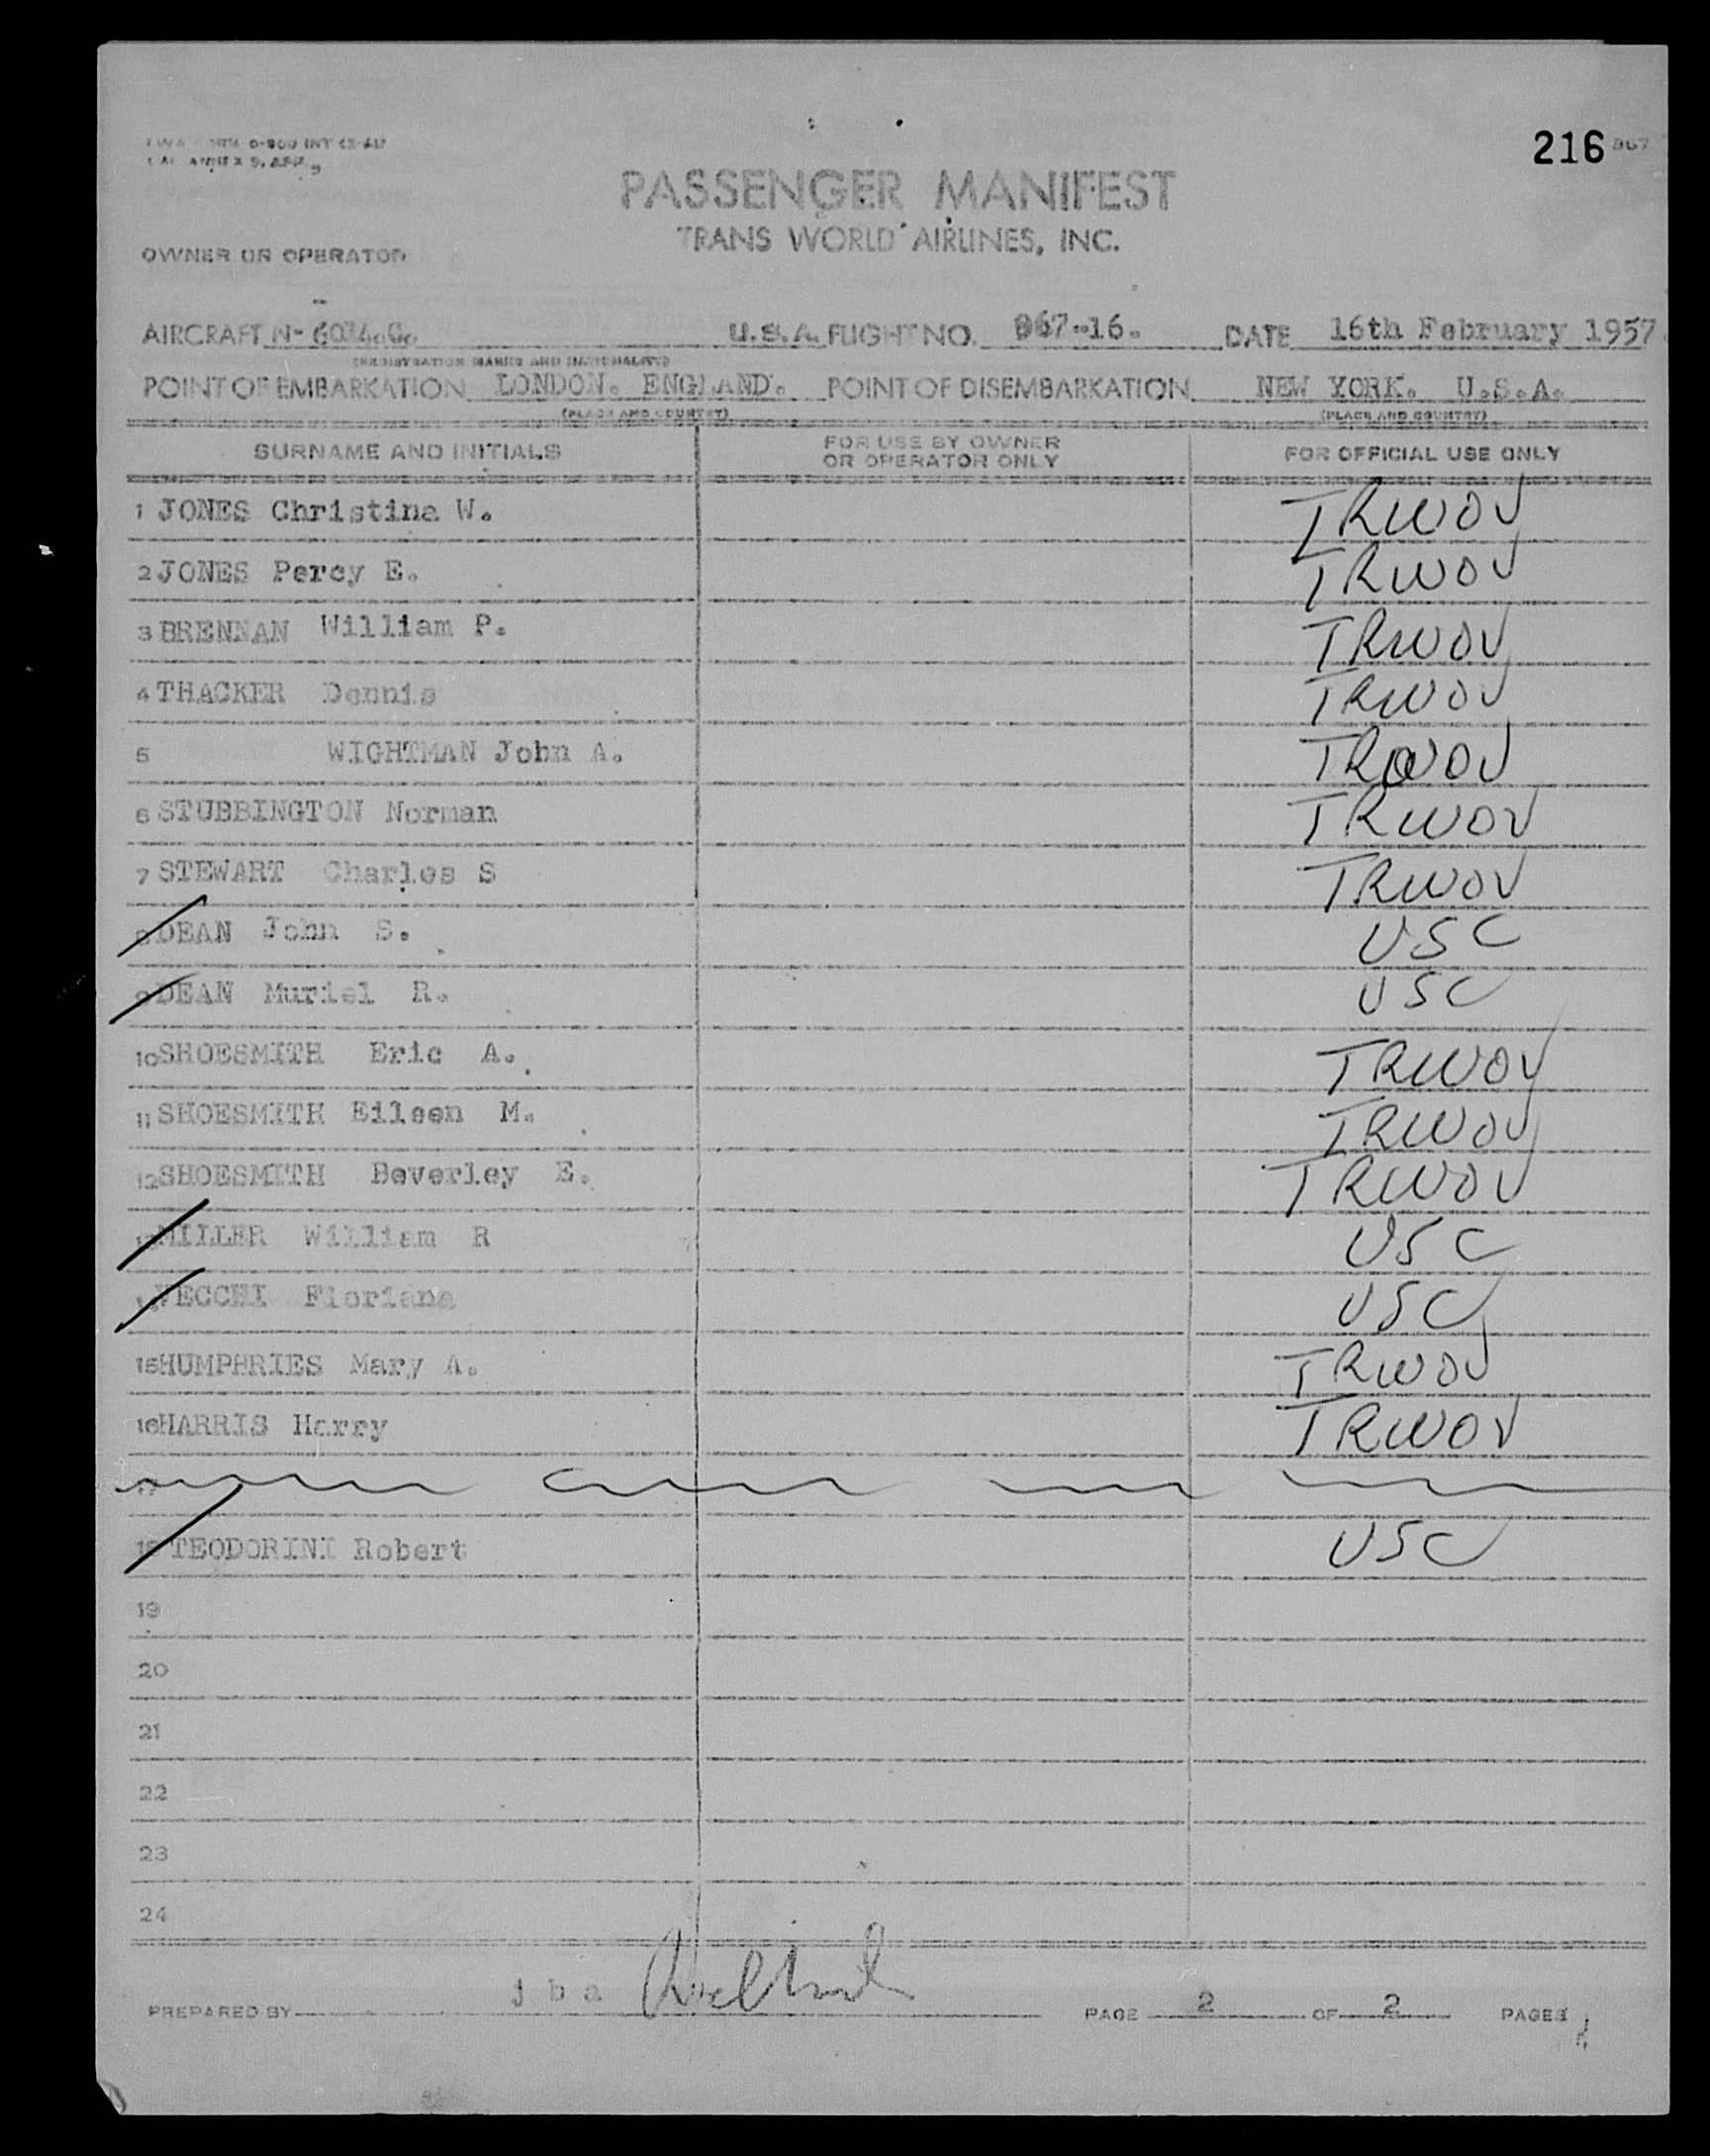 216 867
TWA FORM O-800 INT
PASSENGER MANIFEST
TRANS WORLD AIRLINES, INC.
OWNER OR OPERATOR
AIRCRAFT N- U.S.A. FLIGHT NO. 867-16. DATE 16th February 1957
(REGISTRATION MARKS AND NATIONALITY)
POINT OF EMBARKATION LONDON. ENGLAND. POINT OF DISEMBARKATION NEW YORK. U.S.A.
(PLACE AND COUNTRY) (PLACE AND COUNTRY)
SURNAME AND INITIALS FOR USE BY OWNER OR OPERATOR ONLY FOR OFFICIAL USE ONLY
1 JONES Christina W. TRWOV
2 JONES Percy E. TRWOV
3 BRENNAN William P. TRWOV
4 THACKER Dennis TRWOV
5 WIGHTMAN John A. TRWOV
6 STUBBINGTON Norman TRWOV
7 STEWART Charles S TRWOV
8 DEAN John S. USC
9 DEAN Muriel R. USC
10 SHOESMITH Eric A. TRWOV
11 SHOESMITH Eileen M. TRWOV
12 SHOESMITH Beverley E. TRWOV
13 MILLER William R USC
14 VECCHI Floriana USC
15 HUMPHRIES Mary A. TRWOV
16 HARRIS Harry TRWOV
17
18 TEODORINI Robert USC
19
20
21
22
23
24
PREPARED BY j b a PAGE 2 OF 2 PAGES